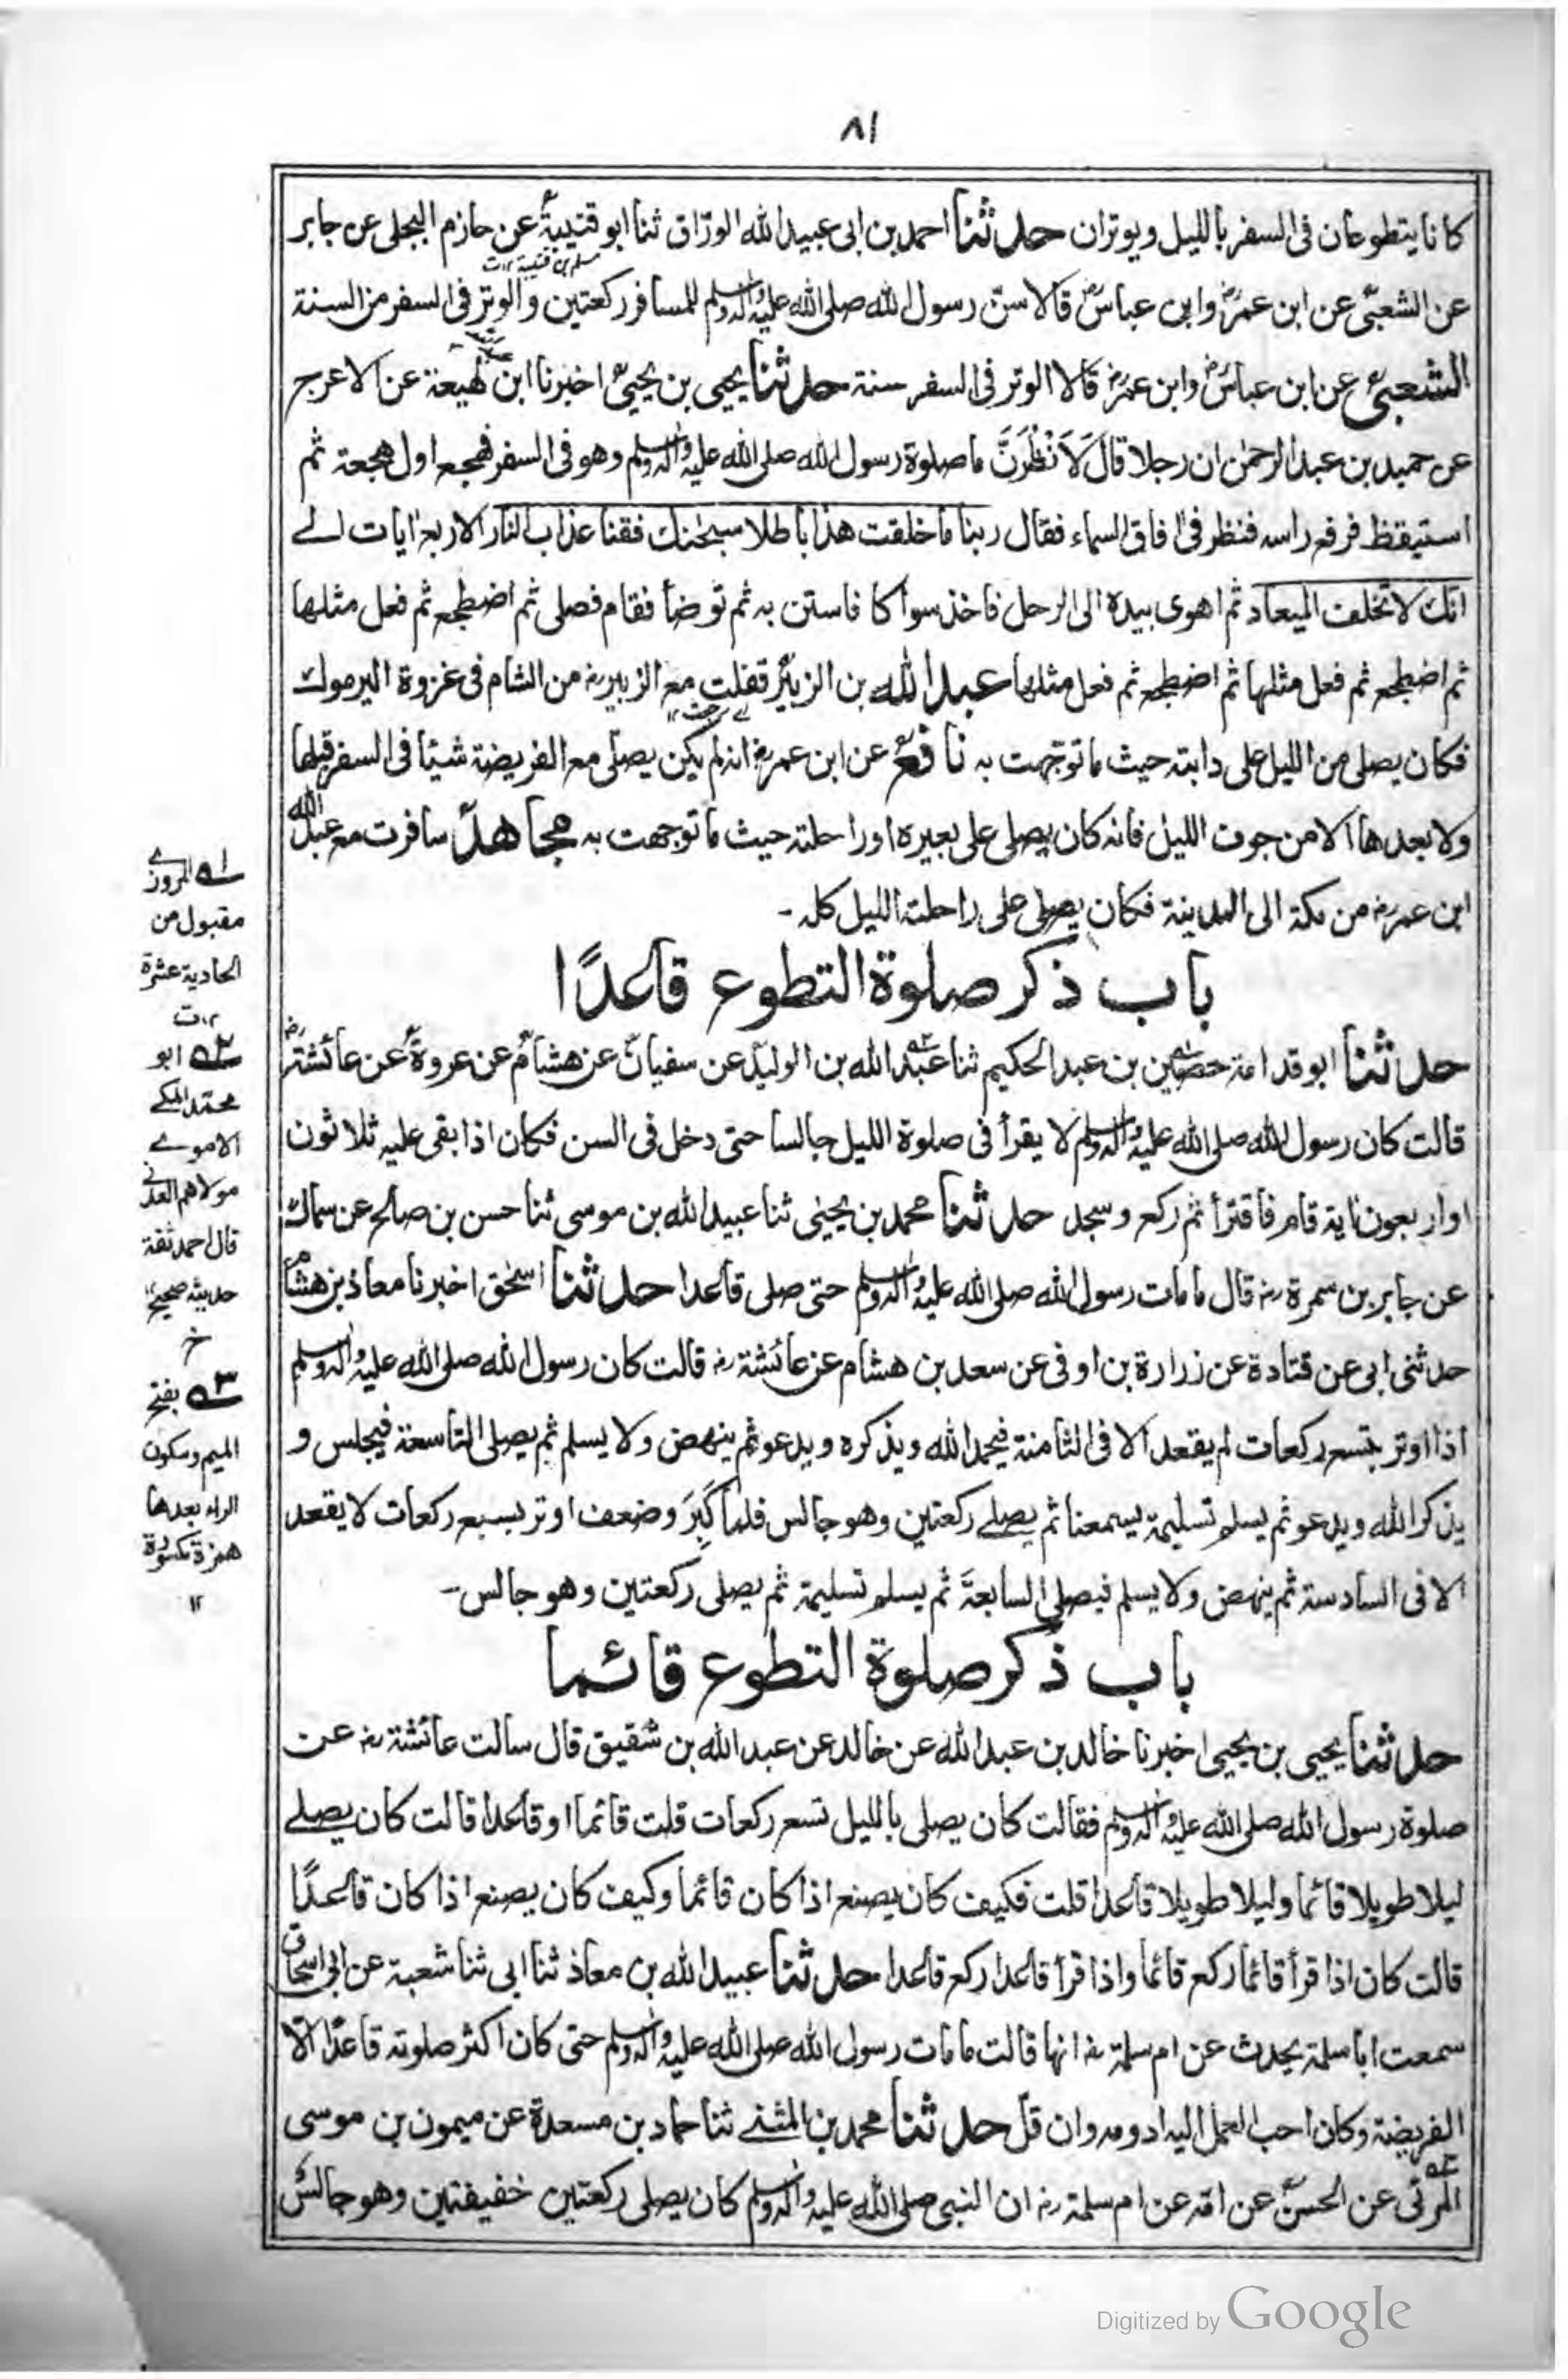 ٨١
كانا يتطوعان فى السفر بالليل ويوتران حدثنا احمد بن ابى عبيد الله الورّاق ثنا ابو قتيبة عن حازم البجلى عن جابر
مسلم بن قتيبة ١٢ت
عن الشعبى عن ابن عمر وابن عباس قالا سنّ رسول الله صلى الله عليه واله وسلم للمسافر ركعتين والوتر فى السفر من السنة
الشعبى عن ابن عباس وابن عمر قالا الوتر فى السفر سنة حدثنا يحيى بن يحيى اخبرنا ابن لهيعة عن الاعرج
عن حميد بن عبد الرحمن ان رجلا قال لَاَنْظُرَنَّ ما صلوة رسول الله صلى الله عليه واله وسلم وهو فى السفر فهجع اول هجعة ثم
استيقظ فرفع راسه فنظر فى افاق السماء فقال ربنا ما خلقت هذا باطلا سبحنك فقنا عذاب النار الاربع ايات الے
انك لا تخلف الميعاد ثم اهوى بيده الى الرحل فاخذ سواكا فاستن به ثم توضأ فقام فصلى ثم اضطجع ثم فعل مثلها
ثم اضطجع ثم فعل مثلها ثم اضطجع ثم فعل مثلها عبد الله بن الزبير قفلت مع الزبير رض من الشام فى غزوة اليرموك
اے رجعت ١٢
فكان يصلى من الليل على دابته حيث ما توجهت به نافع عن ابن عمر رض انه لم يكن يصلى مع الفريضة شيئا فى السفر قبلها
ولا بعدها الا من جوف الليل فانه كان يصلى على بعيره او راحلته حيث ما توجهت به مجاهد سافرت مع عبد الله
ابن عمر رض من مكة الى المدينة فكان يصلى على راحلته الليل كله -
باب ذكر صلوة التطوع قاعدًا
حدثنا ابو قدامة حصين بن عبد الحكيم ثنا عبد الله بن الوليد عن سفيان عن هشام عن عروة عن عائشة رض
قالت كان رسول الله صلى الله عليه واله وسلم لا يقرأ فى صلوة الليل جالسا حتى دخل فى السن فكان اذا بقى عليه ثلاثون
او اربعون اية قام فاقترأ ثم ركع وسجد حدثنا محمد بن يحيى ثنا عبيد الله بن موسى ثنا حسن بن صالح عن سماك
عن جابر بن سمرة رض قال ما مات رسول الله صلى الله عليه واله وسلم حتى صلى قاعدا حدثنا اسحق اخبرنا معاذ بن هشام
حدثنى ابى عن قتادة عن زرارة بن اوفى عن سعد بن هشام عن عائشة رض قالت كان رسول الله صلى الله عليه واله وسلم
اذا اوتر بتسع ركعات لم يقعد الا فى الثامنة فيحمد الله ويذكره ويدعو ثم ينهض ولا يسلم ثم يصلى التاسعة فيجلس و
يذكر الله ويدعو ثم يسلم تسليمة يسمعنا ثم يصلے ركعتين وهو جالس فلما كَبِرَ وضعف اوتر بسبع ركعات لا يقعد
الا فى السادسة ثم ينهض ولا يسلم فيصلى السابعة ثم يسلم تسليمة ثم يصلى ركعتين وهو جالس -
باب ذكر صلوة التطوع قائما
حدثنا يحيى بن يحيى اخبرنا خالد بن عبد الله عن خالد عن عبد الله بن شقيق قال سالت عائشة رض عن
صلوة رسول الله صلى الله عليه واله وسلم فقالت كان يصلى بالليل تسع ركعات قلت قائما او قاعدا قالت كان يصلے
ليلا طويلا قائما وليلا طويلا قاعدا قلت فكيف كان يصنع اذا كان قائما وكيف كان يصنع اذا كان قاعدًا
قالت كان اذا قرأ قائما ركع قائما واذا قرأ قاعدا ركع قاعدا حدثنا عبيد الله بن معاذ ثنا ابى ثنا شعبة عن ابى اسحاق
سمعت ابا سلمة يحدث عن ام سلمة رض انها قالت ما مات رسول الله صلى الله عليه واله وسلم حتى كان اكثر صلوته قاعدًا الّا
الفريضة وكان احب العمل اليه ادومه وان قلّ حدثنا محمد بن المثنے ثنا حماد بن مسعدة عن ميمون بن موسى
المرئى عن الحسن عن امه عن ام سلمة رض ان النبى صلى الله عليه واله وسلم كان يصلى ركعتين خفيفتين وهو جالس
١ه المروزے
مقبول من
الحادية عشرة
١٢ت
٢ه ابو
محمد المكے
الاموے
مولاهم العدنى
قال احمد ثقة
حديثه صحيح ١٢
خ
٣ه بفتح
الميم وسكون
الراء بعدها
همزة مكسورة
١٢
Digitized by Google